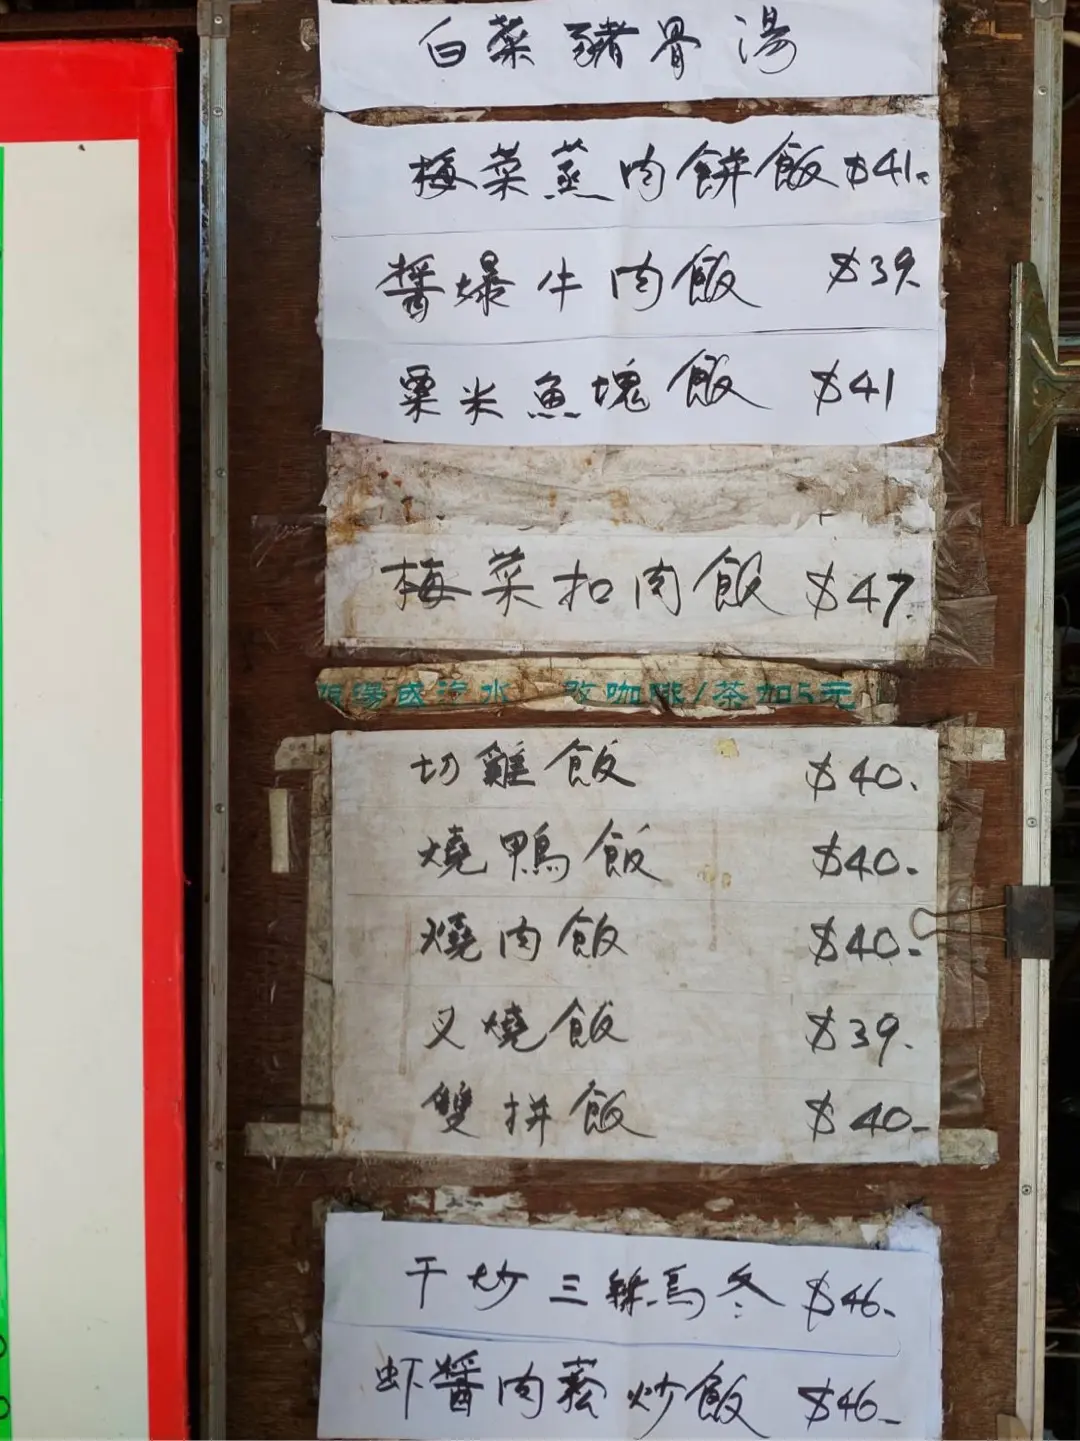 白菜豬骨湯
梅菜蒸肉餅飯 $41.
醬爆牛肉飯 $39.
粟米魚塊飯 $41
梅菜扣肉飯 $47.
湯或汽水 改咖啡/茶加5元
切雞飯 $40.
燒鴨飯 $40-
燒肉飯 $40-
叉燒飯 $39.
雙拼飯 $40-
干炒三絲烏冬 $46-
虾醬肉菘炒飯 $46-